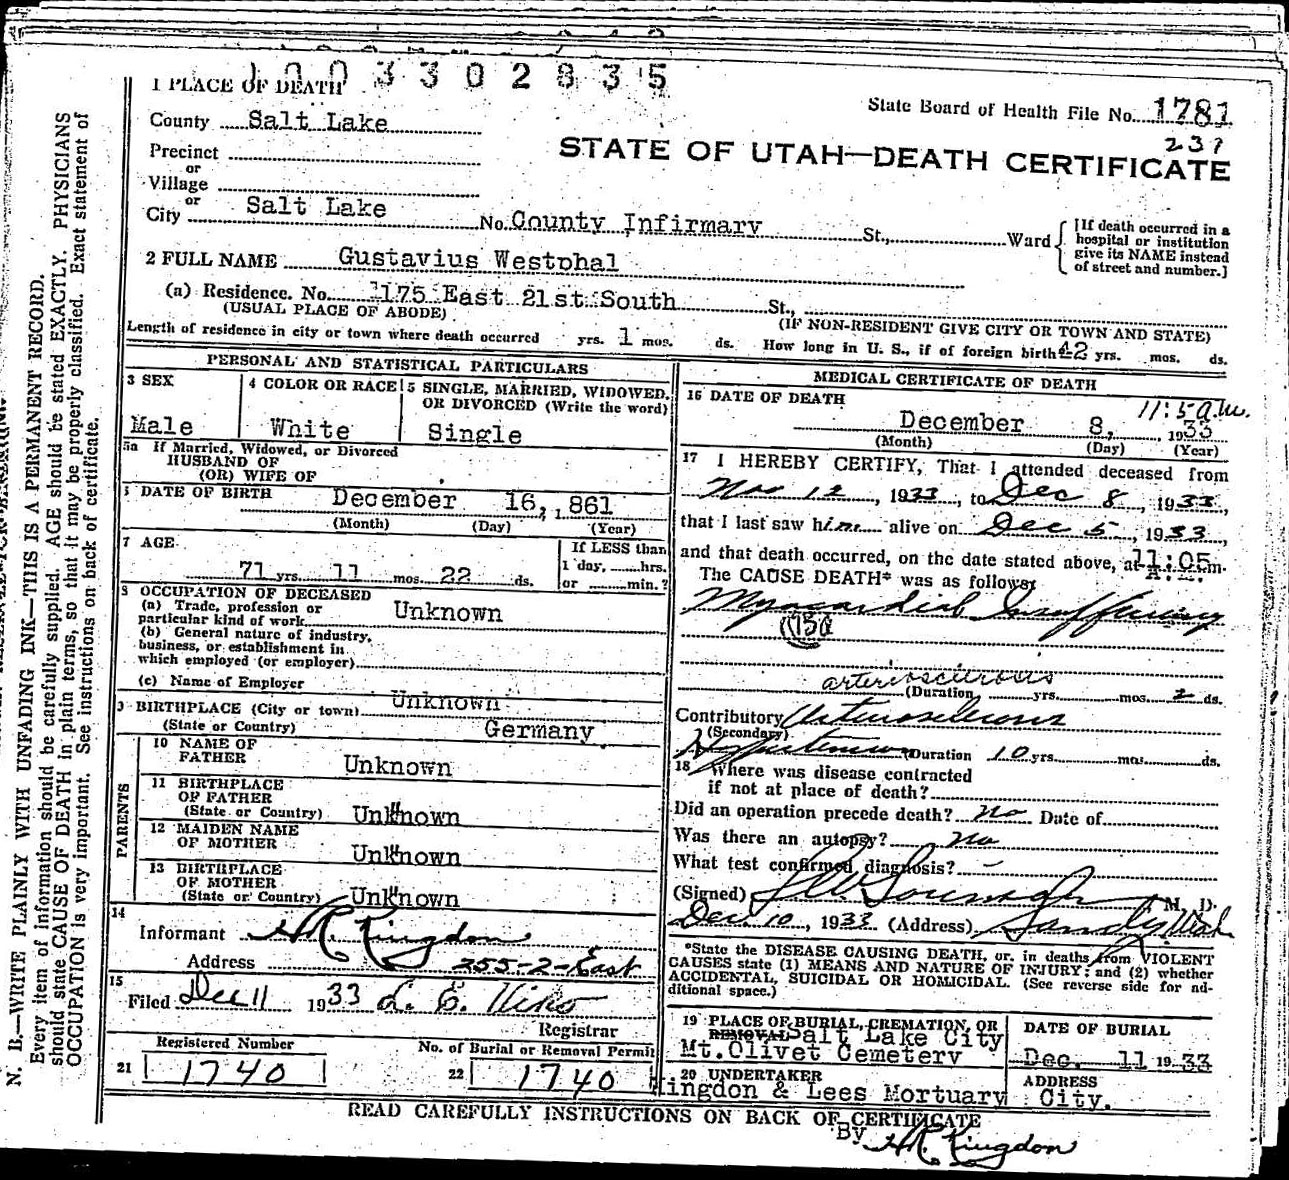 1 0 0 3 3 0 2 8 3 5
1 PLACE OF DEATH
State Board of Health File No. 1781
County Salt Lake
237
STATE OF UTAH—DEATH CERTIFICATE
Precinct
or
Village
or
City Salt Lake No. County Infirmary St., Ward
[If death occurred in a hospital or institution give its NAME instead of street and number.]
2 FULL NAME Gustavius Westphal
(a) Residence. No. 175 East 21st South St.,
(USUAL PLACE OF ABODE) (IF NON-RESIDENT GIVE CITY OR TOWN AND STATE)
Length of residence in city or town where death occurred yrs. 1 mos. ds. How long in U. S., if of foreign birth 42 yrs. mos. ds.
PERSONAL AND STATISTICAL PARTICULARS
3 SEX
Male
4 COLOR OR RACE
White
5 SINGLE, MARRIED, WIDOWED,
OR DIVORCED (Write the word)
Single
5a If Married, Widowed, or Divorced
HUSBAND OF
(OR) WIFE OF
DATE OF BIRTH December 16, 1861
(Month) (Day) (Year)
7 AGE
71 yrs. 11 mos. 22 ds.
If LESS than
1 day, hrs.
or min.?
8 OCCUPATION OF DECEASED
(a) Trade, profession or
particular kind of work Unknown
(b) General nature of industry,
business, or establishment in
which employed (or employer)
(c) Name of Employer
9 BIRTHPLACE (City or town) Unknown
(State or Country) Germany
PARENTS
10 NAME OF
FATHER Unknown
11 BIRTHPLACE
OF FATHER
(State or Country) Unknown
12 MAIDEN NAME
OF MOTHER Unknown
13 BIRTHPLACE
OF MOTHER
(State or Country) Unknown
14
Informant H R Kingdon
Address 255-2-East
15
Filed Dec 11 1933
Registrar
Registered Number
21 1740
No. of Burial or Removal Permit
22 1740
MEDICAL CERTIFICATE OF DEATH
16 DATE OF DEATH 11:5 a.m.
December 8, 1933
(Month) (Day) (Year)
17 I HEREBY CERTIFY, That I attended deceased from
Nov 12, 1933, to Dec 8, 1933,
that I last saw him alive on Dec 5, 1933,
and that death occurred, on the date stated above, at 11:05 A.M.
The CAUSE DEATH* was as follows:
Myocardial Insufficiency
arteriosclerosis
(Duration yrs. mos. 2 ds.
Contributory Arteriosclerosis
(Secondary)
Hypertension (Duration 10 yrs. mos. ds.
18 Where was disease contracted
if not at place of death?
Did an operation precede death? no Date of
Was there an autopsy? no
What test confirmed diagnosis? -
(Signed) M. D.
Dec. 10, 1933 (Address) Sandy, Utah
*State the DISEASE CAUSING DEATH, or, in deaths from VIOLENT
CAUSES state (1) MEANS AND NATURE OF INJURY; and (2) whether
ACCIDENTAL, SUICIDAL OR HOMICIDAL. (See reverse side for ad-
ditional space.)
19 PLACE OF BURIAL, CREMATION, OR
REMOVAL Salt Lake City
Mt. Olivet Cemetery
DATE OF BURIAL
Dec. 11 1933
20 UNDERTAKER
Kingdon & Lees Mortuary
ADDRESS
City.
READ CAREFULLY INSTRUCTIONS ON BACK OF CERTIFICATE
By H R. Kingdon
N. B.—WRITE PLAINLY WITH UNFADING INK—THIS IS A PERMANENT RECORD.
Every item of information should be carefully supplied. AGE should be stated EXACTLY. PHYSICIANS
should state CAUSE OF DEATH in plain terms, so that it may be properly classified. Exact statement of
OCCUPATION is very important. See instructions on back of certificate.